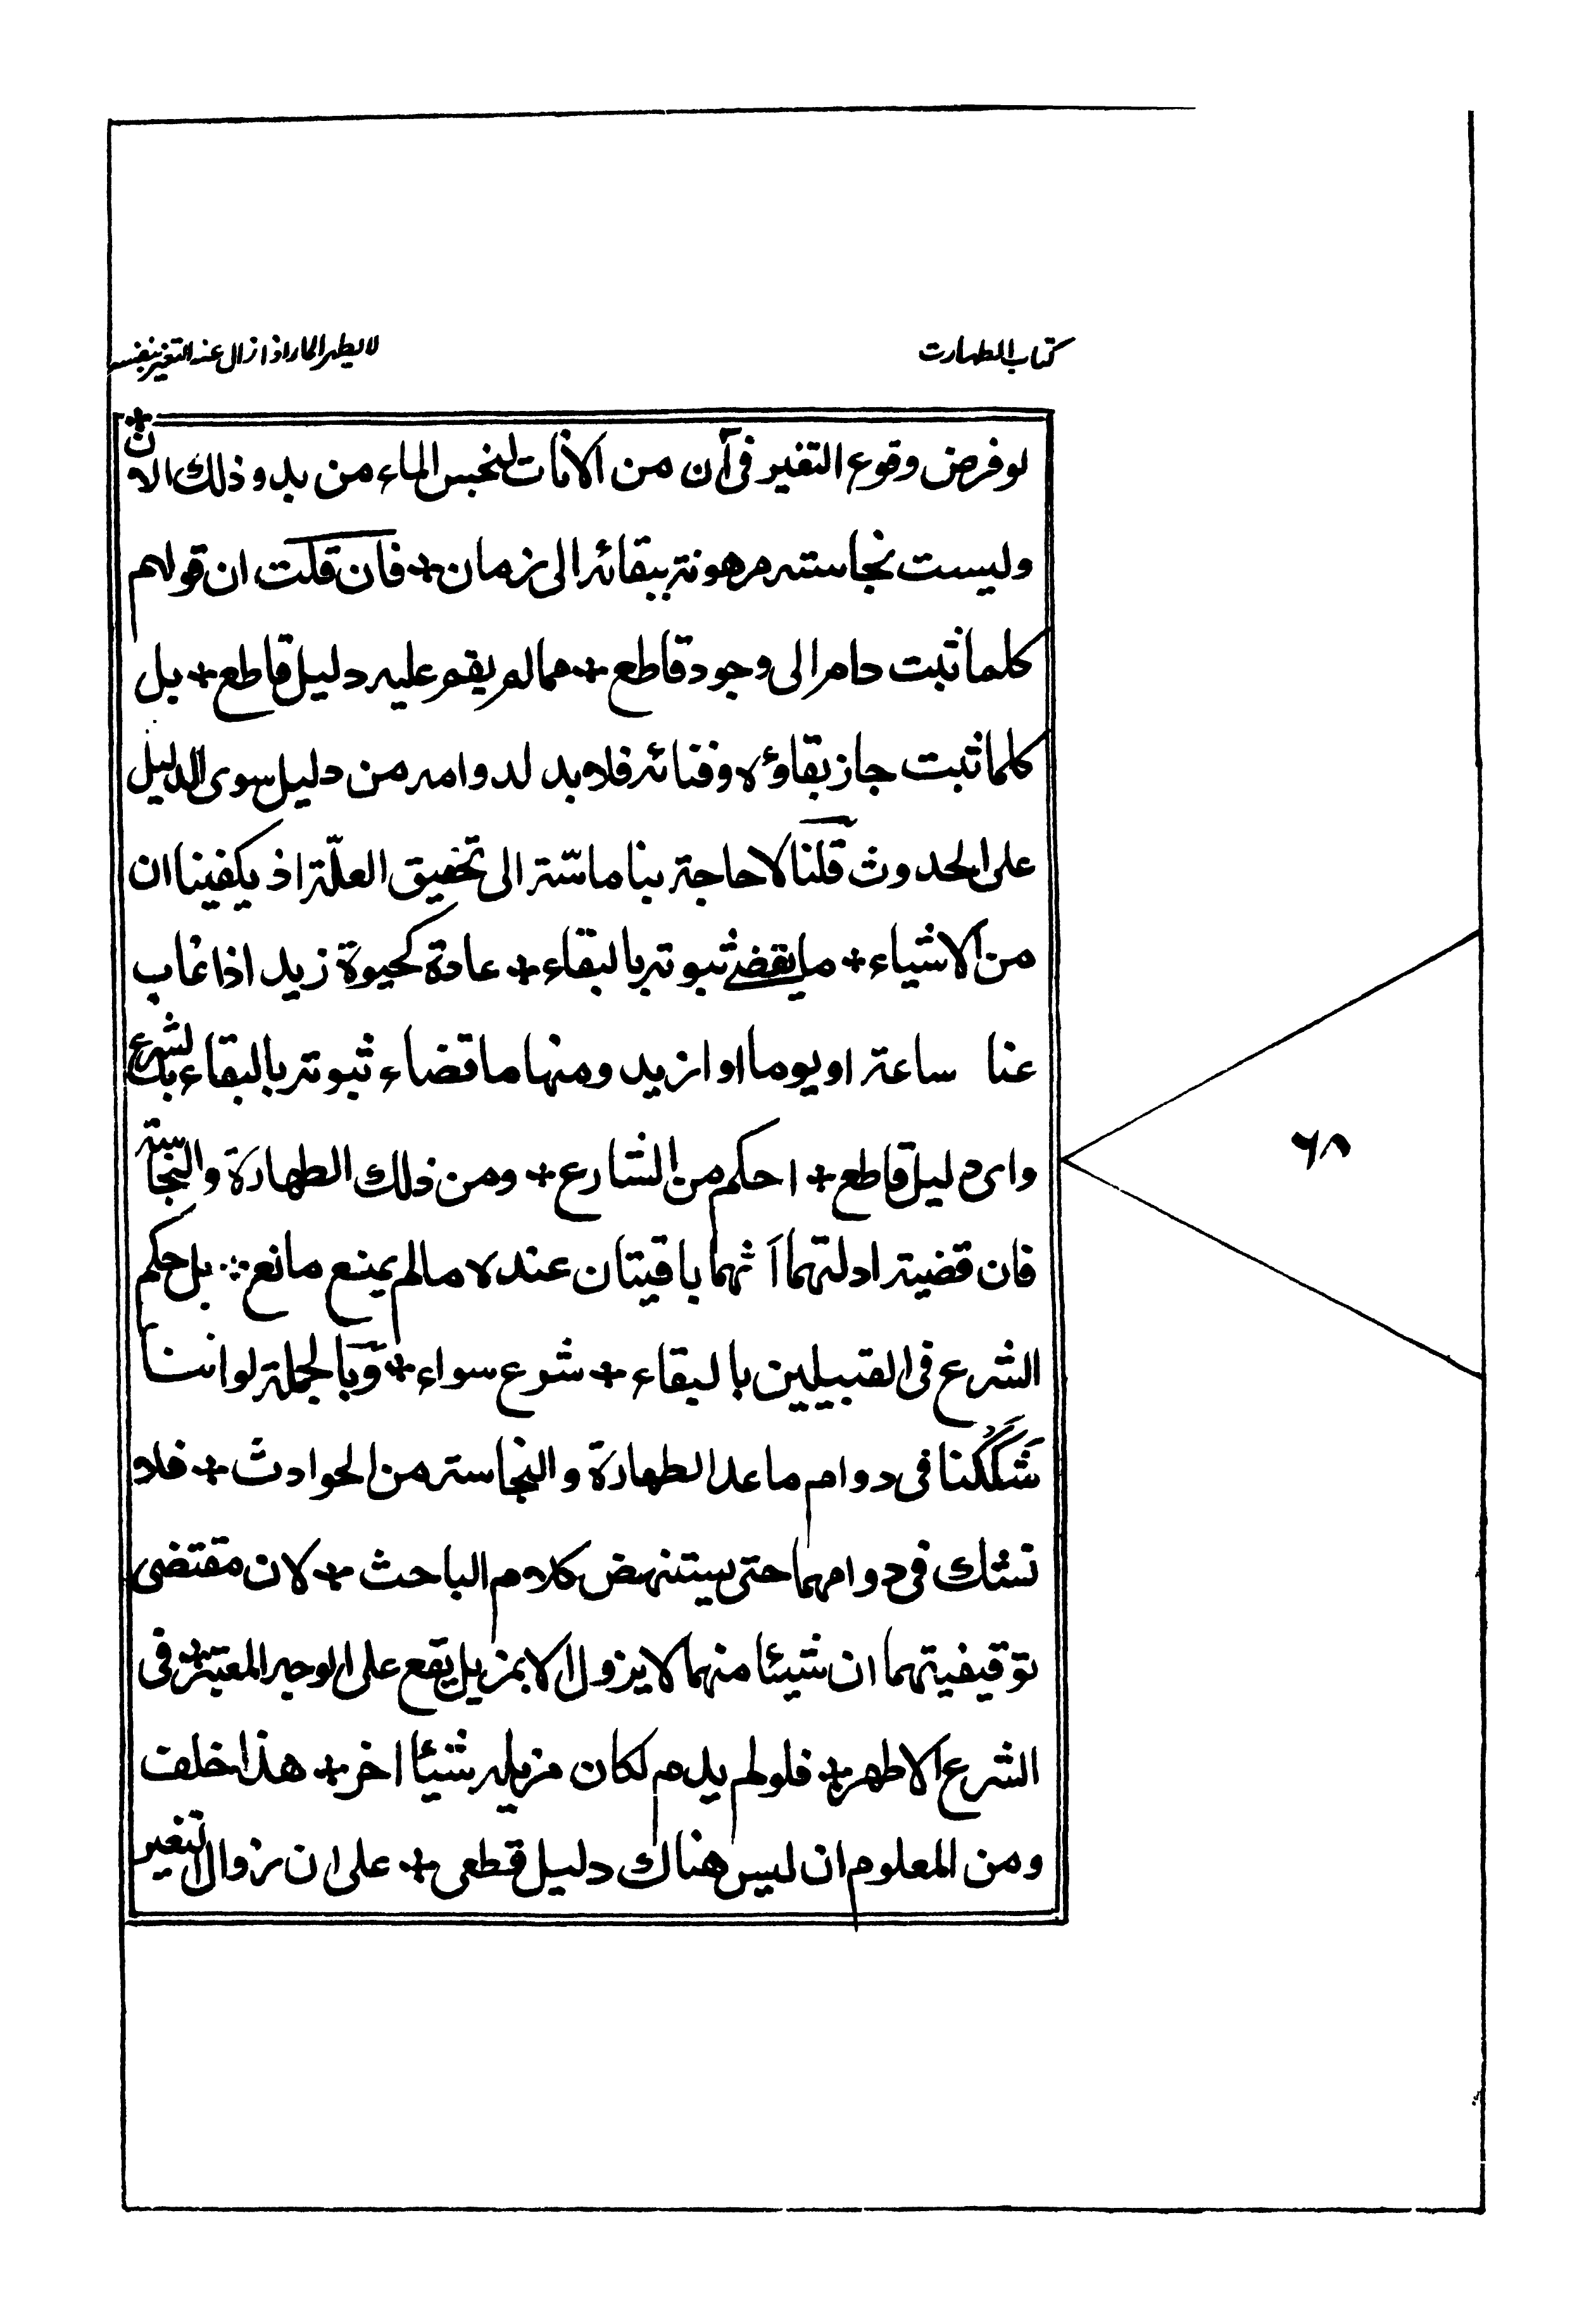 كتاب الطهارت
لا يطهر الماء اذا زال عنه التغير بنفسه
لو فرض وقوع التغير فى آن من الانات لنجس الماء من بدو ذلك الان +
وليست نجاسته مرهونة ببقائه الى زمان + فان قلت ان قولهم
كلما ثبت دام الى وجود قاطع + مما لم يقم عليه دليل قاطع + بل
كلما ثبت جاز بقاؤه وفنائه فلا بد لدوامه من دليل سوى الدليل
على الحدوث قلنا لا حاجة بنا ماسّة الى تحقيق العلّة اذ يكفينا ان
من الاشياء + ما يقضے ثبوته بالبقاء + عادة كحيوة زيد اذا غاب
عنا ساعة او يوما او ازيد ومنها ما قضاء ثبوته بالبقاء بالشرع
واى دليل قاطع + احكم من الشارع + ومن ذلك الطهارة والنجاسة
فان قضية ادلتهما انهما باقيتان عنده مالم يمنع مانع ∴ بل حكم
الشرع فى القبيلين بالبقاء + شرع سواء + وبالجملة لو اننا
شككنا فى دوام ما عدا الطهارة والنجاسة من الحوادث + فلا
نشك فى دوامهما حتى يستنهض كلام الباحث + لان مقتضى
توقيفيتهما ان شيئا منهما لا يزول الا بمزيل يقع على الوجه المعتبر فى
الشرع الاطهر + فلو لم يدم لكان مزيله شيئا اخر + هذا خلف
ومن المعلوم ان ليس هناك دليل قطعى + على ان زوال التغير
٦٨